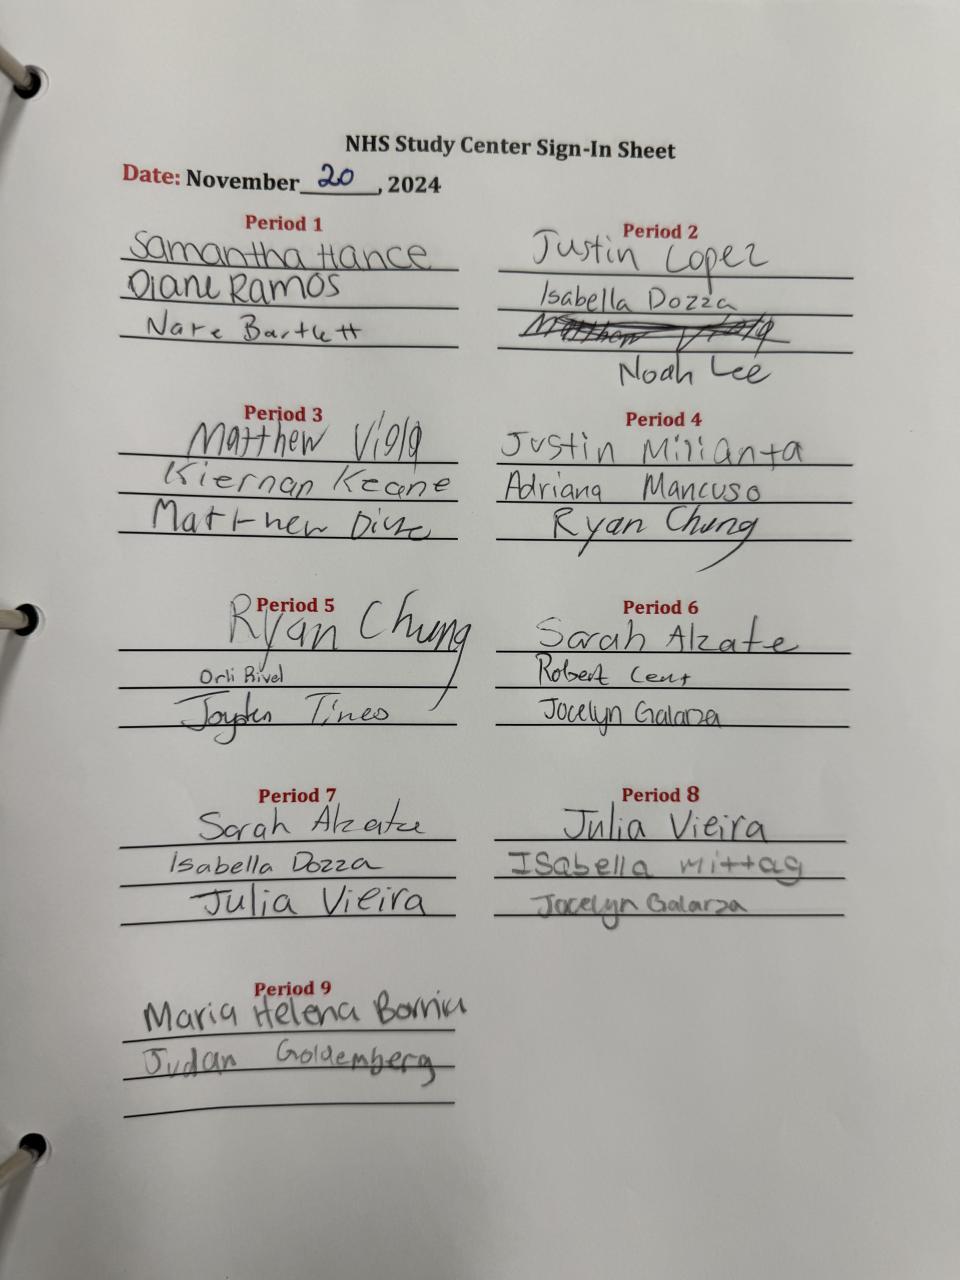 NHS Study Center Sign-In Sheet
Date: November 20, 2024
Period 1
Samantha Hance
Diane Ramos
Nate Bartlett
Period 2
Justin Lopez
Isabella Dozza
Matthew Viola
Noah Lee
Period 3
Matthew Viola
Kiernan Keane
Matthew
Period 4
Justin Milianta
Adriana Mancuso
Ryan Chung
Period 5
Ryan Chung
Orli Rivel
Jayden Tineo
Period 6
Sarah Alzate
Robert
Jocelyn Galarza
Period 7
Sarah Alzate
Isabella Dozza
Julia Vieira
Period 8
Julia Vieira
Isabella Mittag
Jocelyn Galarza
Period 9
Maria Helena
Judan Goldemberg